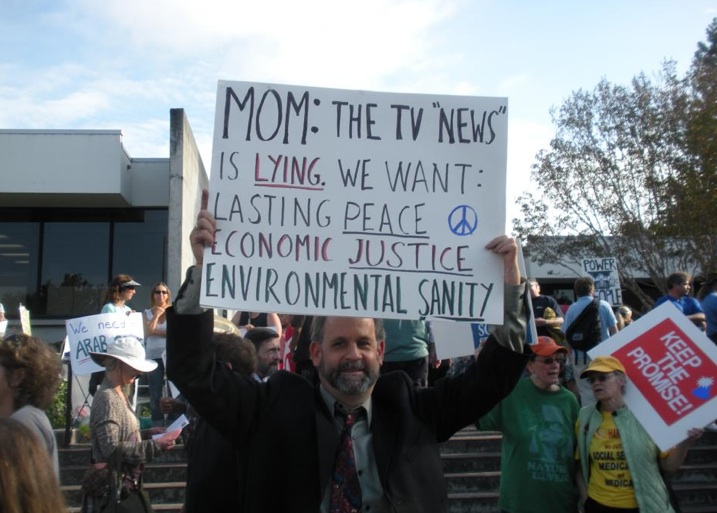 MOM: THE TV "NEWS"
IS LYING. WE WANT:
LASTING PEACE
ECONOMIC JUSTICE
ENVIRONMENTAL SANITY
We need
ARAB
POWER
KEEP
THE
PROMISE!
SOCIAL SE
MEDICA